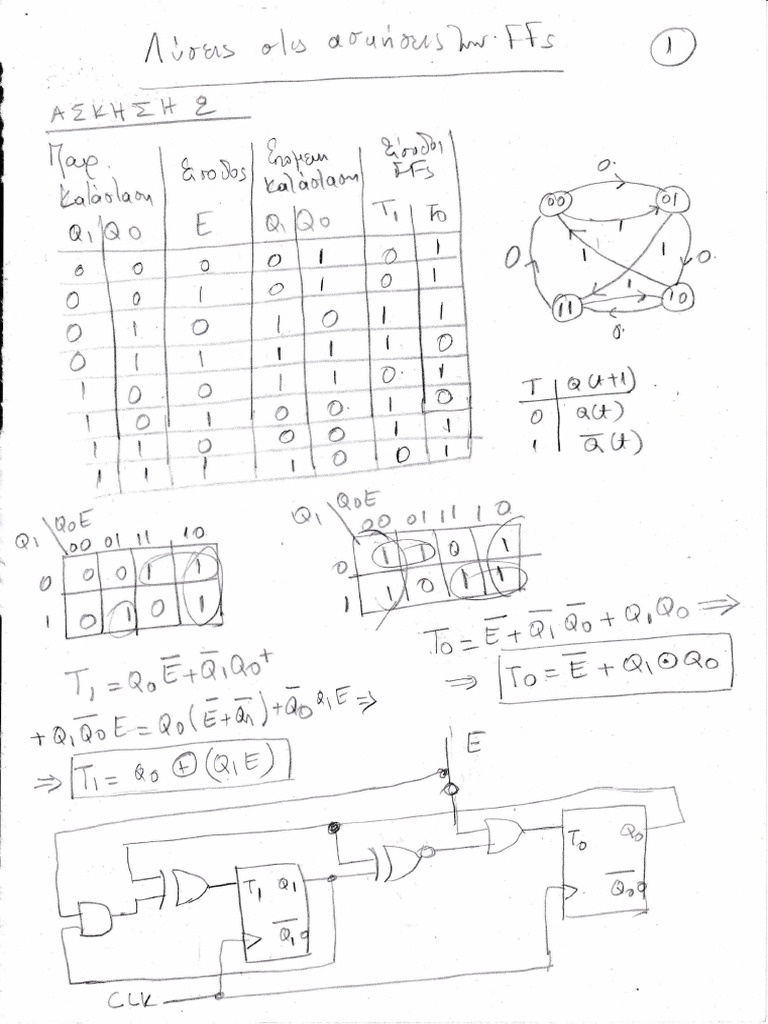 Λύσεις στις ασκήσεις των FFs
1
ΑΣΚΗΣΗ 2
Παρ. κατάσταση | Είσοδος | Επόμενη κατάσταση | Είσοδοι FFs
Q1 | Q0 | E | Q1 | Q0 | T1 | T0
0 | 0 | 0 | 0 | 1 | 0 | 1
0 | 0 | 1 | 0 | 1 | 0 | 1
0 | 1 | 0 | 1 | 0 | 1 | 1
0 | 1 | 1 | 1 | 1 | 1 | 0
1 | 0 | 0 | 1 | 1 | 0 | 1
1 | 0 | 1 | 0 | 0 | 1 | 0
1 | 1 | 0 | 0 | 0 | 1 | 1
1 | 1 | 1 | 1 | 0 | 0 | 1
0
00 01
1
0 1 1 0
1
11 10
0
T | Q(t+1)
0 | Q(t)
1 | Q̅(t)
Q1 \ Q0E
00 01 11 10
0 | 0 | 0 | 1 | 1
1 | 0 | 1 | 0 | 1
Q1 \ Q0E
00 01 11 10
0 | 1 | 1 | 0 | 1
1 | 1 | 0 | 1 | 1
T1 = Q0E̅ + Q̅1Q0 +
+ Q1Q̅0E = Q0(E̅ + Q̅1) + Q̅0Q1E ⇒
⇒ T1 = Q0 ⊕ (Q1E)
T0 = E̅ + Q̅1Q̅0 + Q1Q0 ⇒
⇒ T0 = E̅ + Q1 ⊙ Q0
E
T1 Q1
Q̅1
T0 Q0
Q̅0
CLK